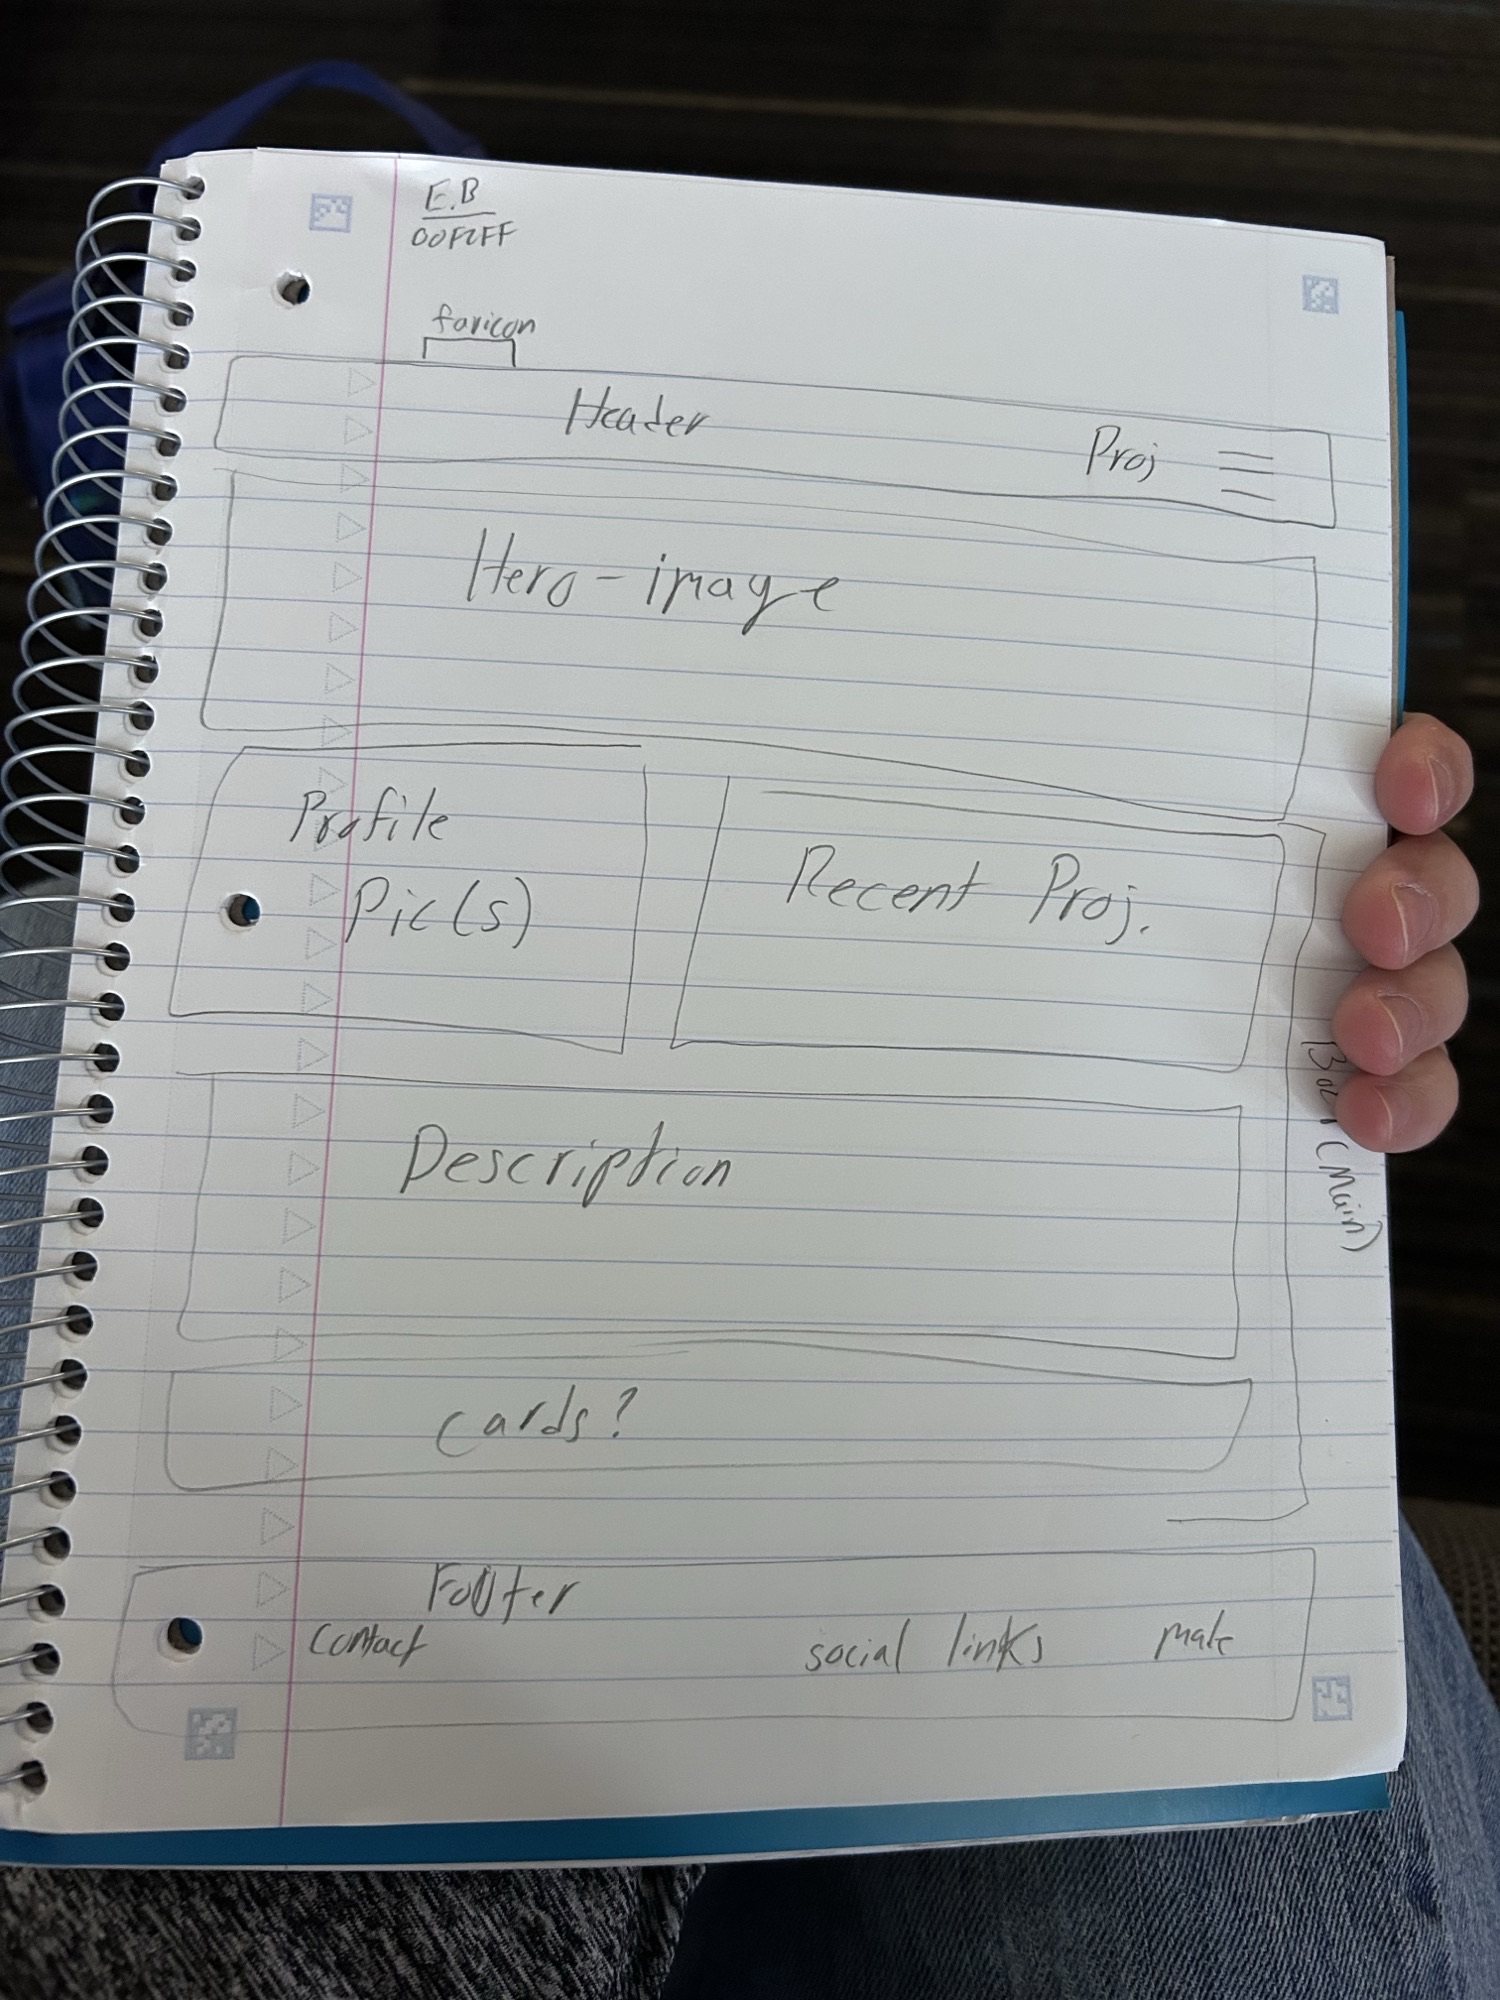 E.B
00F2FF
favicon
Header
Proj
Hero-image
Profile
Pic(s)
Recent Proj.
Description
(Main)
cards?
Footer
contact
social links